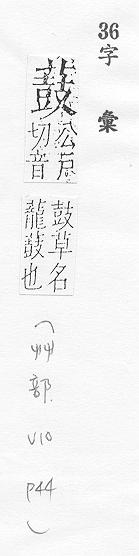 36字 彙
薣
公戶
切音
鼓草名
蘢薣也
(艸部 V10 P44)